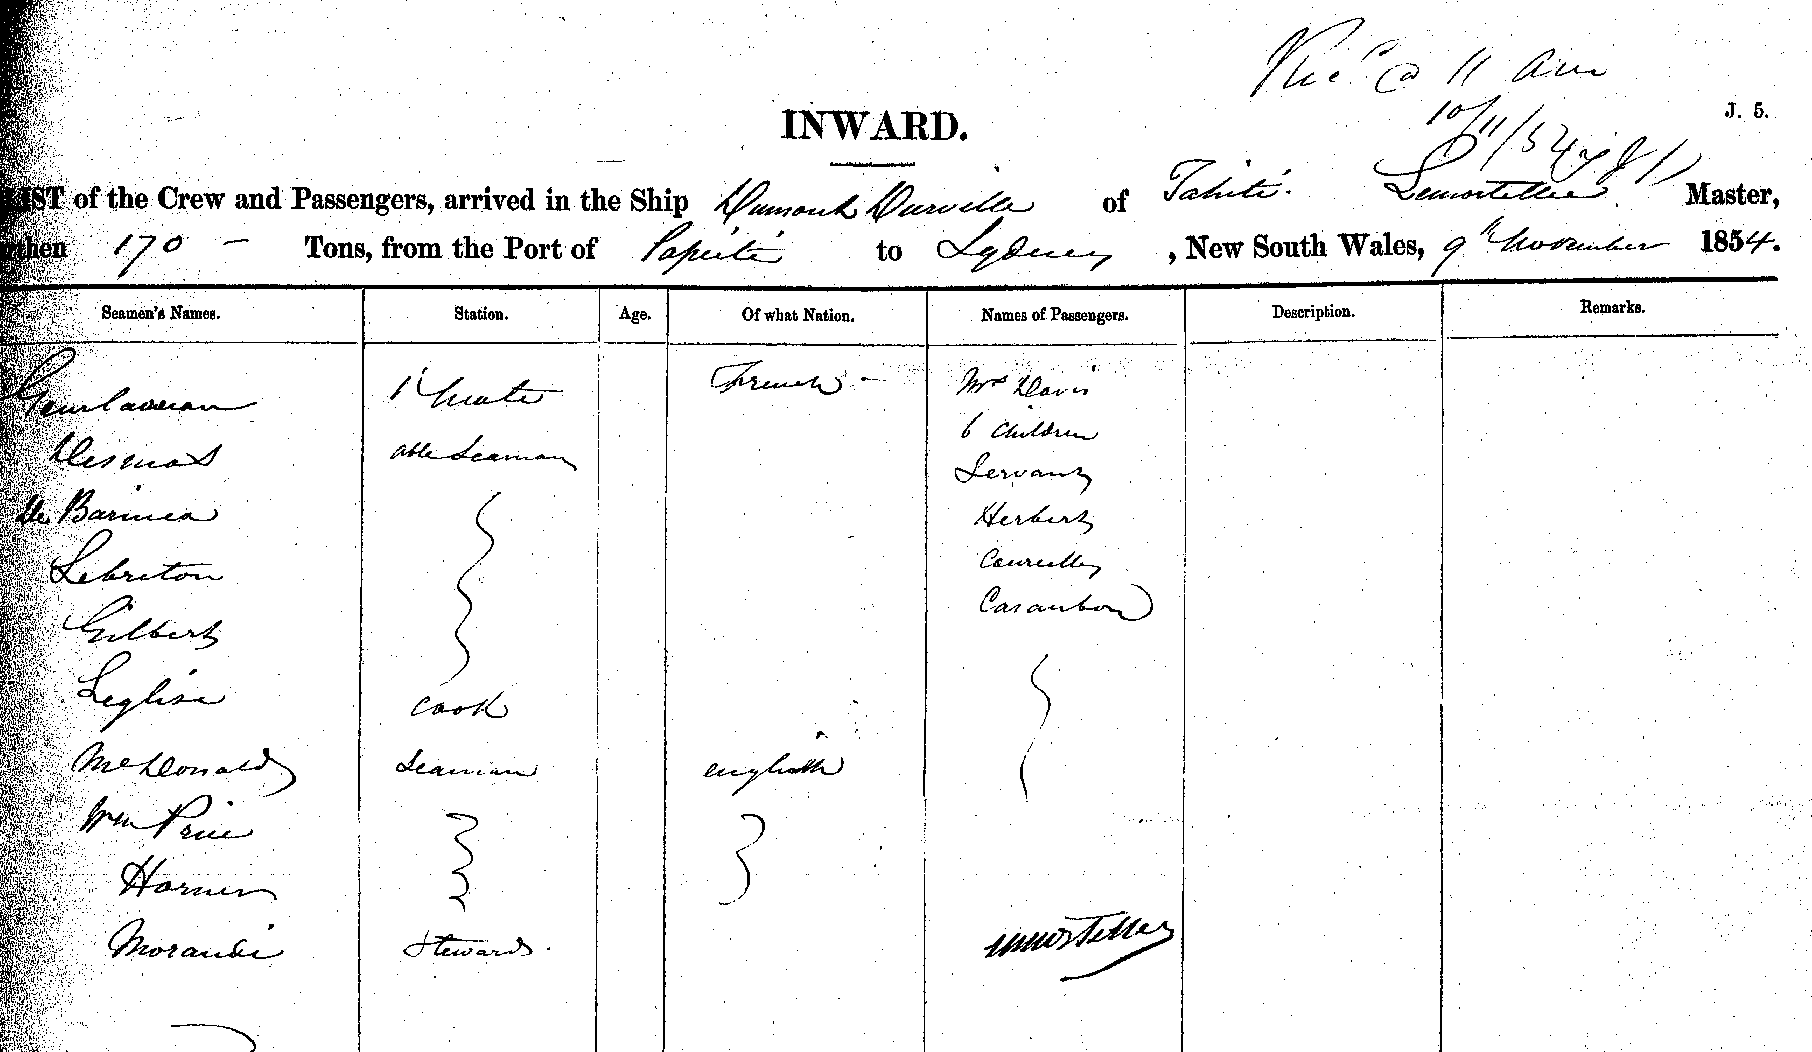 Rec.d @ 11 am
10/11/54
J. 5.
INWARD.
LIST of the Crew and Passengers, arrived in the Ship Dumont Durville of Tahiti. Lemortellec Master,
then 170 – Tons, from the Port of Papeiti to Sydney, New South Wales, 9th November 1854.
Seamen's Names. Station. Age. Of what Nation. Names of Passengers. Description. Remarks.
1st Mate French - Mrs Davis
6 Children
Desmos able Seaman
Servant
De Barmea Herbert
Lebreton
Casaubon
Gilbert
Leglise Cook
McDonald Seaman english
Wm Price
Horner
Morandi Steward.